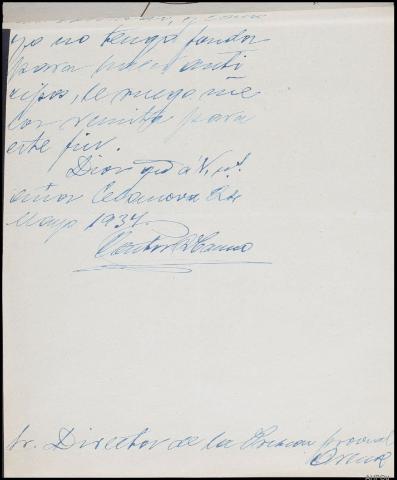 yo no tengo fondos
para hacer anti
cipos, le ruego me
los remita para
este fin.
Dios gd á V. ms.
años Celanova 24
Mayo 1937.
Sr. Director de la Prision provincial
Orense